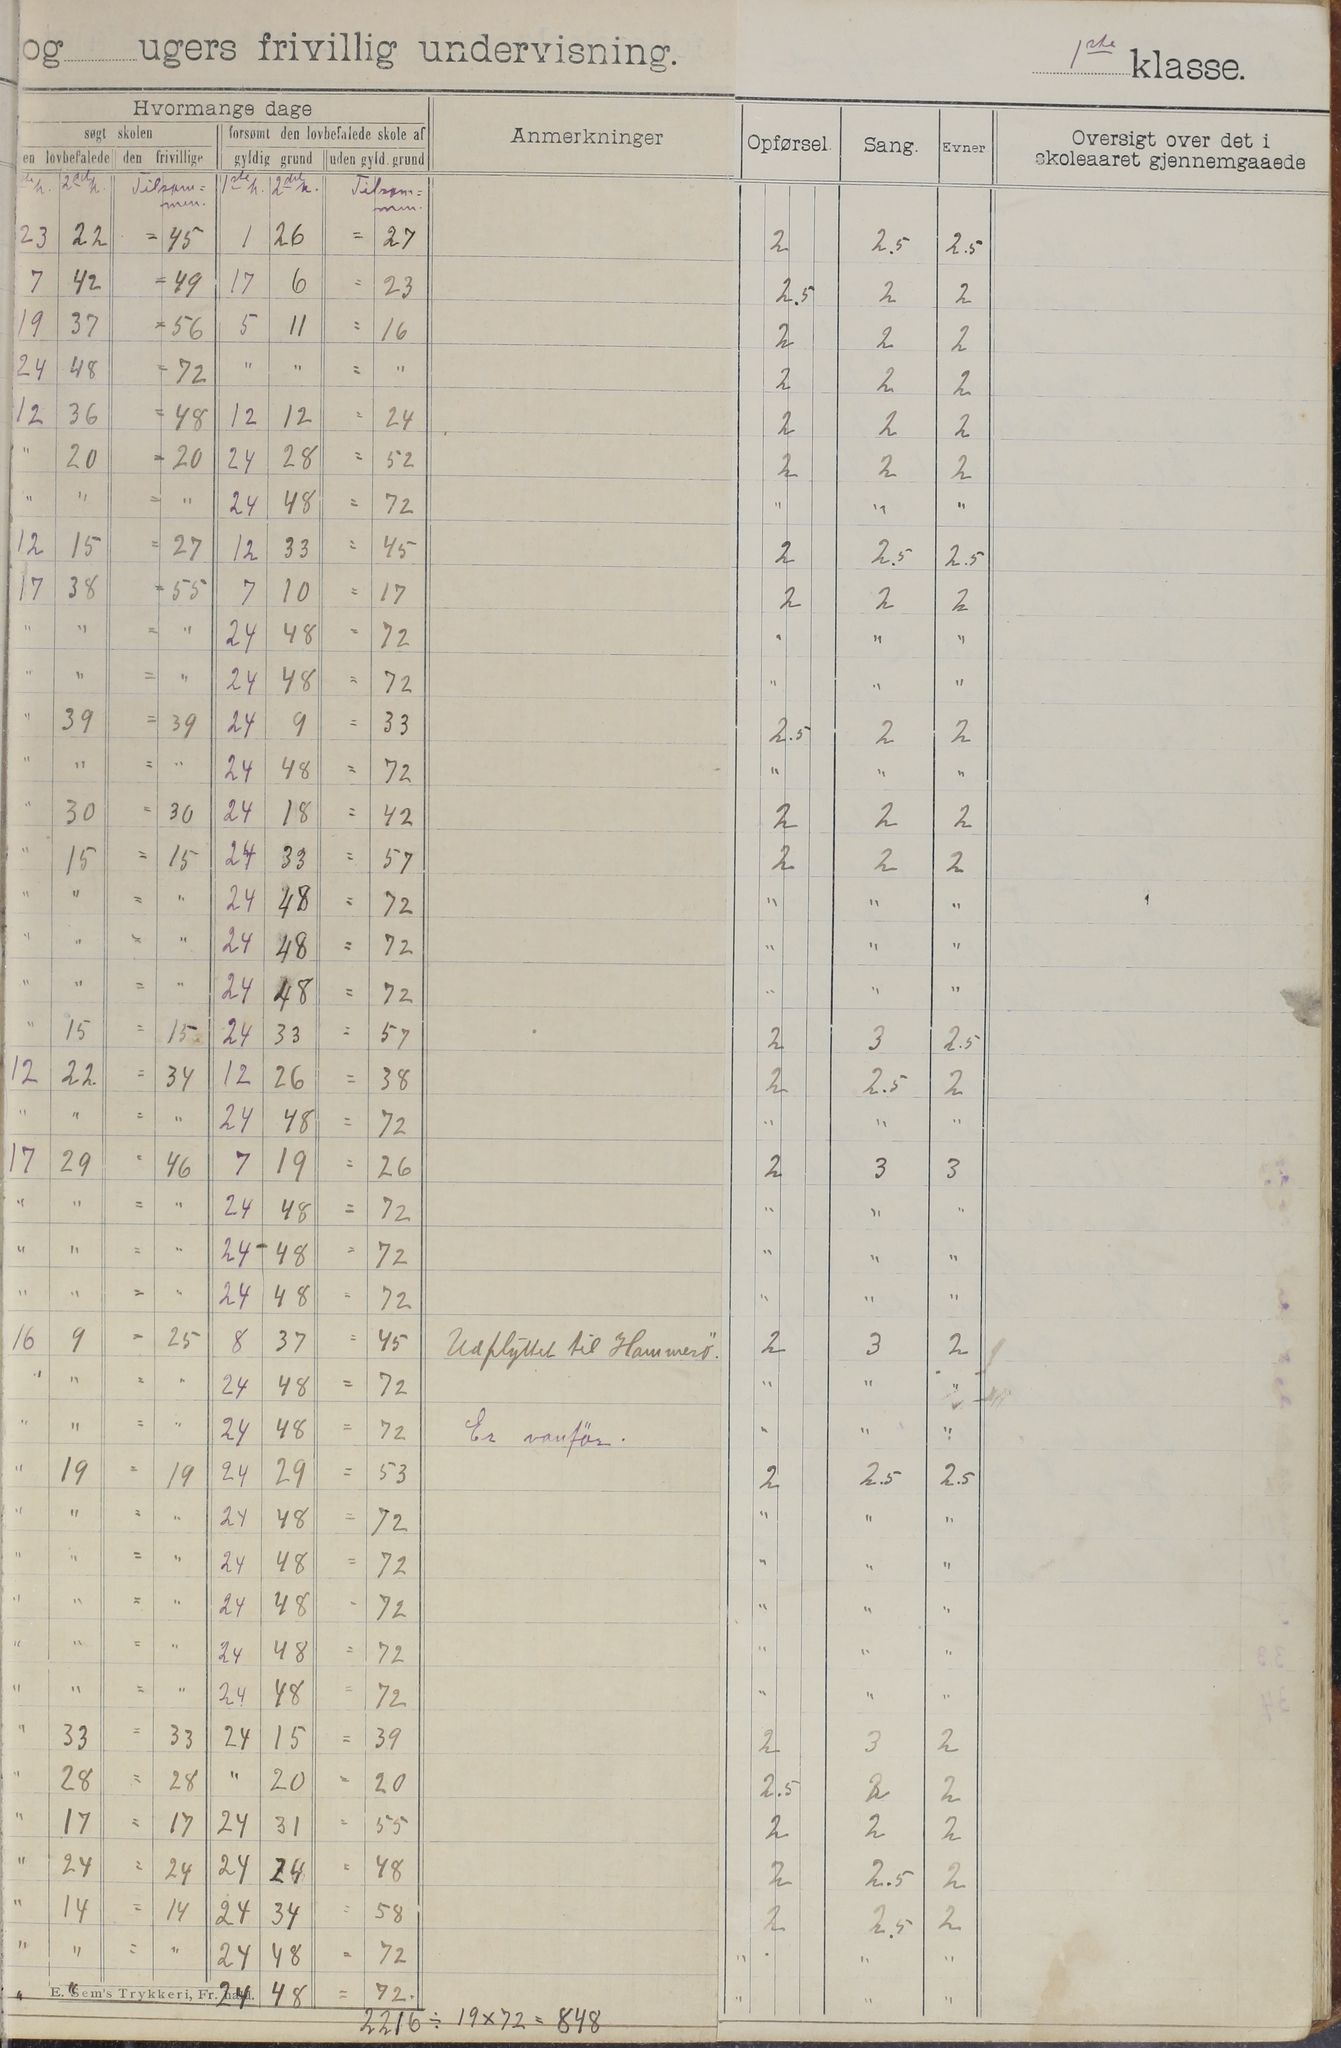 og ugers frivillig undervisning. 1ste klasse.
Hvormange dage
søgt skolen forsømt den lovbefalede skole af Anmerkninger Opførsel. Sang. Evner Oversigt over det i skoleaaret gjennemgaaede
en lovbefalede den frivillige gyldig grund uden gyld. grund
2det h. Tilsammen. 1ste h. 2det h. Tilsammen.
23 22 = 45 1 26 = 27 2 2.5 2.5
7 42 = 49 17 6 = 23 2.5 2 2
19 37 = 56 5 11 = 16 2 2 2
24 48 = 72 " " = " 2 2 2
12 36 = 48 12 12 = 24 2 2 2
" 20 = 20 24 28 = 52 2 2 2
" " = " 24 48 = 72 " " "
12 15 = 27 12 33 = 45 2 2.5 2.5
17 38 = 55 7 10 = 17 2 2 2
" " = " 24 48 = 72 " " "
" " = " 24 48 = 72 " " "
" 39 = 39 24 9 = 33 2.5 2 2
" " = " 24 48 = 72 " " "
" 30 = 30 24 18 = 42 2 2 2
" 15 = 15 24 33 = 57 2 2 2
" " = " 24 48 = 72 " " "
" " = " 24 48 = 72 " " "
" " = " 24 48 = 72 " " "
" 15 = 15 24 33 = 57 2 3 2.5
12 22 = 34 12 26 = 38 2 2.5 2
" " = " 24 48 = 72 " " "
17 29 = 46 7 19 = 26 2 3 3
" " = " 24 48 = 72 " " "
" " = " 24 48 = 72 " " "
" " = " 24 48 = 72 " " "
16 9 = 25 8 37 = 45 Udflyttet til Hammerö. 2 3 2
" " = " 24 48 = 72 " " "
" " = " 24 48 = 72 Er vanför. " " "
" 19 = 19 24 29 = 53 2 2.5 2.5
" " = " 24 48 = 72 " " "
" " = " 24 48 = 72 " " "
" " = " 24 48 = 72 " " "
" " = " 24 48 = 72 " " "
" " = " 24 48 = 72 " " "
" 33 = 33 24 15 = 39 2 3 2
" 28 = 28 " 20 = 20 2.5 2 2
" 17 = 17 24 31 = 55 2 2 2
" 24 = 24 24 24 = 48 2 2.5 2
" 14 = 14 24 34 = 58 2 2.5 2
" " = " 24 48 = 72 " " "
" " 24 48 = 72. " " "
E. Sem's Trykkeri, Fr.hald.
2216 ÷ 19 x 72 = 848